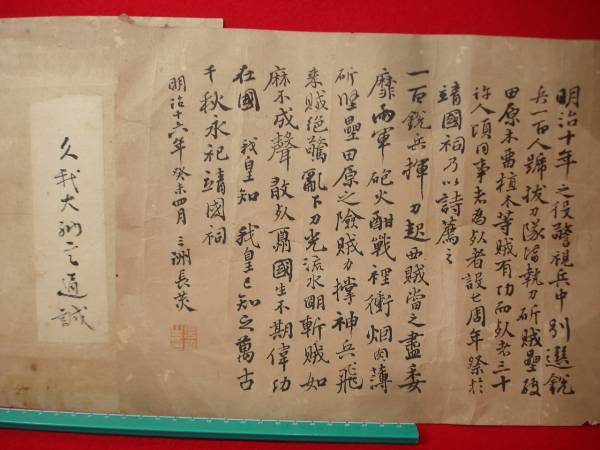 明治十年之役警視兵中別選銳
兵一百人號拔刀隊皆執刀斫賊壘
田原木留植木等賊有功而死者三十
許人頃同事者為死者設七周年祭於
靖國祠乃以詩薦之
一百銳兵揮刀起西賊當之盡委
靡兩軍砲火酣戰裡衝烟肉薄
斫堅壘田原之險賊力撐神兵飛
来賊絶驚亂下刀光流水明斬賊如
麻不成聲敢死國生不期偉功
在國 我皇知 我皇已知之萬古
千秋永祀靖國祠
明治十六年癸未四月 三洲長炗
久我大納言通誠